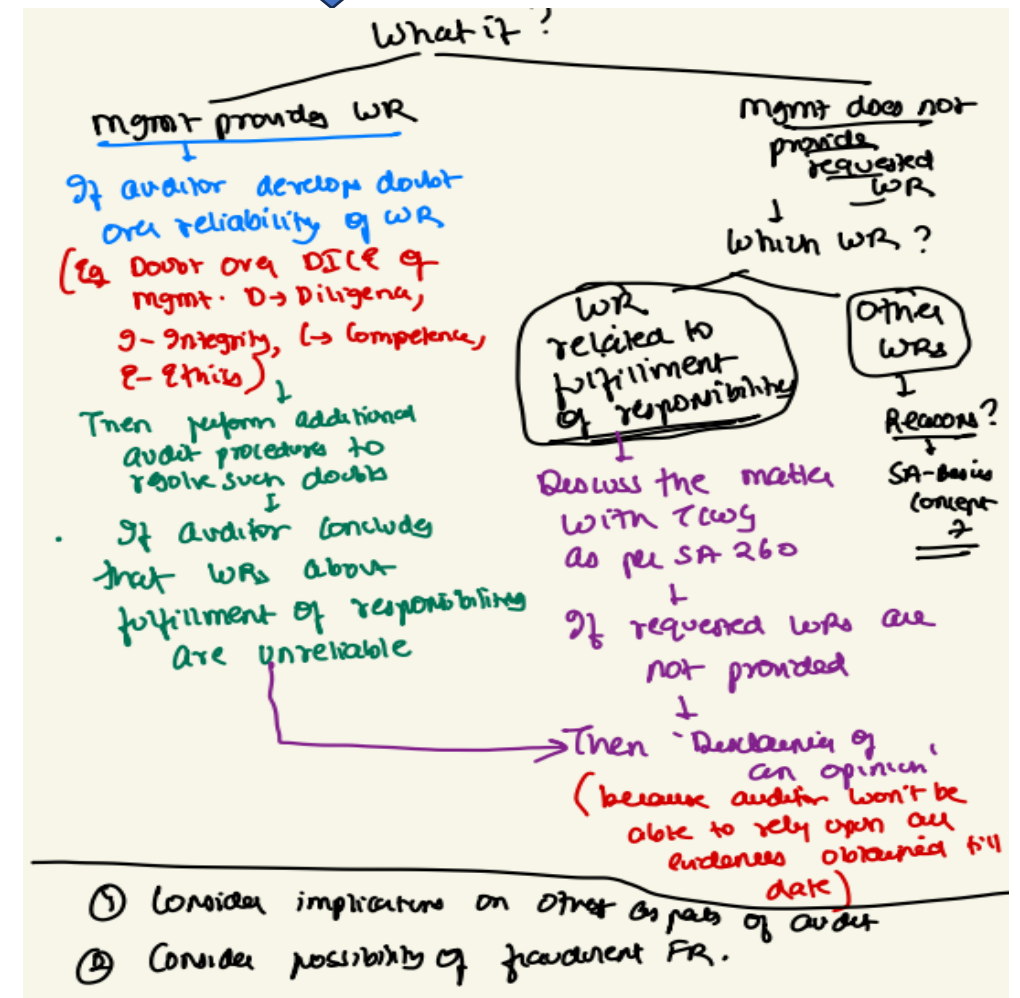 What if?
Mgmt provides WR
If auditor develops doubt
over reliability of WR
(Eg Doubt over DICE of
mgmt. D→ Diligence,
I- Integrity, C→ Competence,
E- Ethics)
Then perform additional
audit procedures to
resolve such doubts
If auditor concludes
that WRs about
fulfillment of responsibilities
are unreliable
Mgmt does not
provide
requested
WR
Which WR?
WR
related to
fulfillment
of responsibilities
Discuss the matter
with TCWG
as per SA 260
If requested WRs are
not provided
Then 'Disclaimer of
an opinion'
(because auditor won't be
able to rely upon all
evidences obtained till
date)
Other
WRs
Reasons?
SA-Basics
Concept
① Consider implications on other aspects of audit
② Consider possibility of fraudulent FR.